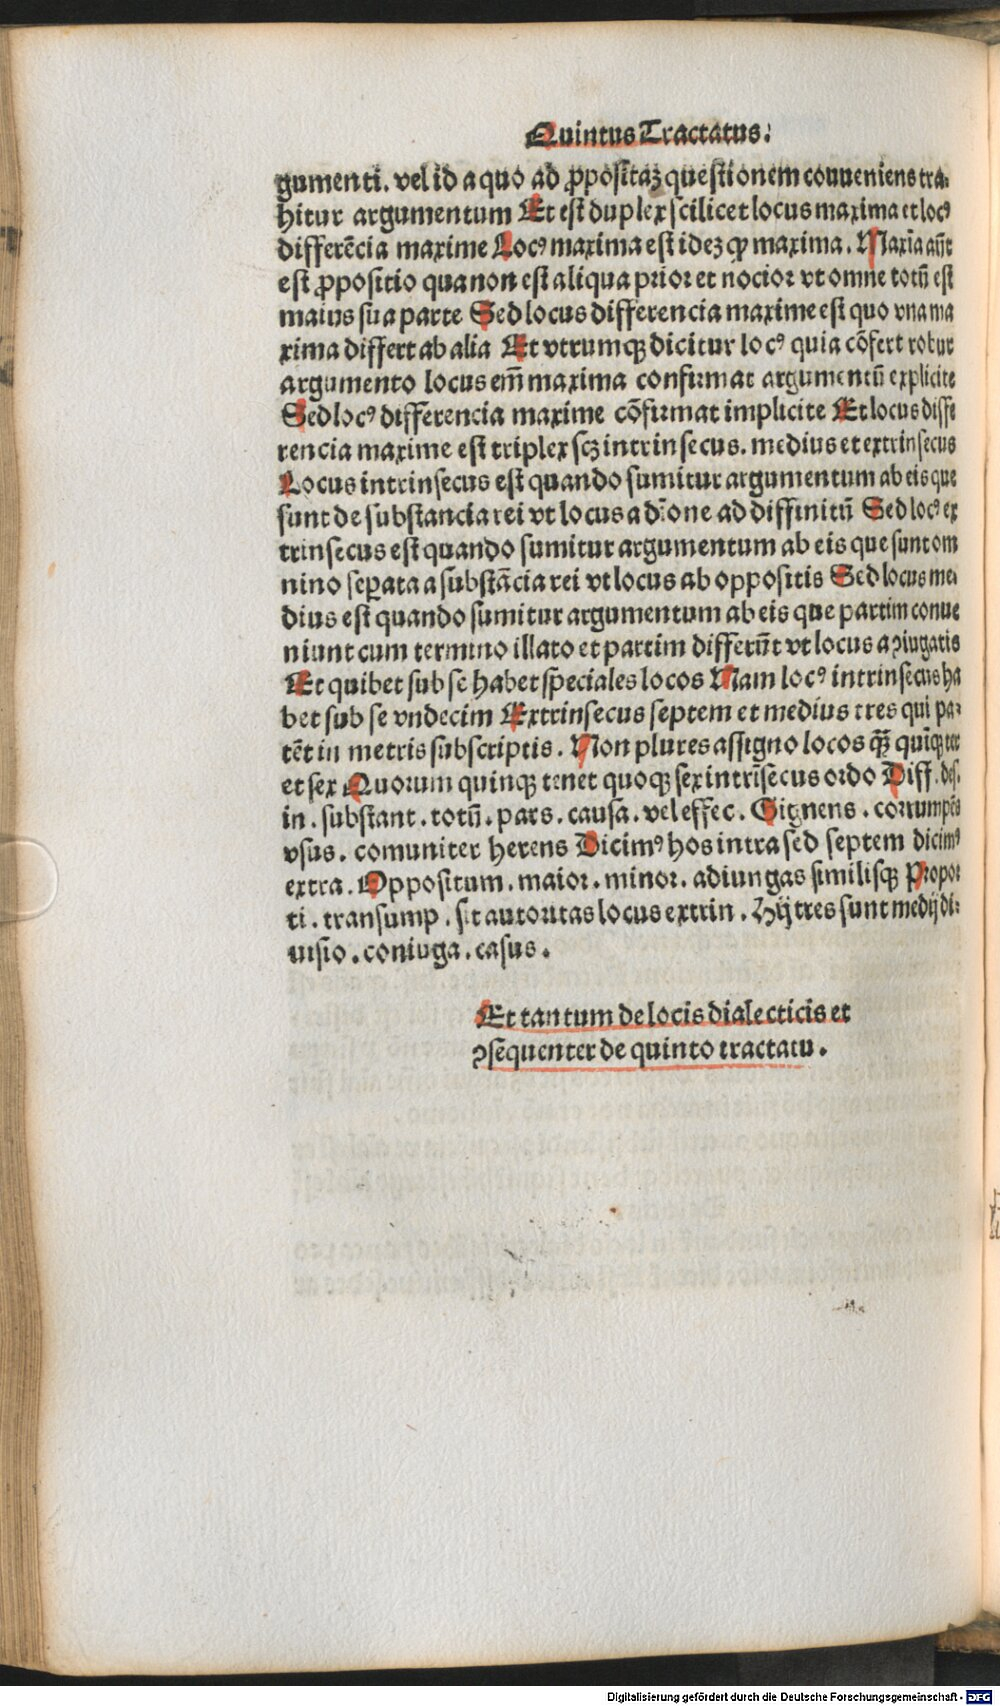 Quintus Tractatus.
gumenti. vel id a quo ad ꝓpositaꝫ questionem conueniens tra-
hitur argumentum Et est duplex scilicet locus maxima et locꝰ
differēcia maxime Locꝰ maxima est ideꝫ ꝙ maxima. Maxīa aūt
est ꝓpositio qua non est aliqua prior et nocior vt omne totū est
maius sua parte Sed locus differencia maxime est quo vna ma
xima differt ab alia Et vtrumqꝫ dicitur locꝰ quia cōfert robur
argumento locus em̄ maxima confirmat argumentū explicite
Sed locꝰ differencia maxime cōfirmat implicite Et locus diffe
rencia maxime est triplex scꝫ intrinsecus. medius et extrinsecus
Locus intrinsecus est quando sumitur argumentum ab eis que
sunt de substancia rei vt locus a dīone ad diffinitū Sed locꝰ ex
trinsecus est quando sumitur argumentum ab eis que sunt om
nino seꝑata a substācia rei vt locus ab oppositis Sed locus me-
dius est quando sumitur argumentum ab eis que partim conue
niunt cum termino illato et partim differūt vt locus a ꝯiugatis
Et quibet sub se habet speciales locos Nam locꝰ intrinsecus ha
bet sub se vndecim Extrinsecus septem et medius tres qui pa-
tēt in metris subscriptis. Non plures assigno locos qꝫ̄ quīqꝫ ter
et sex Quorum quinqꝫ tenet quoqꝫ sex intrīsecus ordo Diff. des.
in. substant. totū. pars. causa. vel effec. Gignens. corrumpēs
vsus. comuniter herens Dicimꝰ hos intra sed septem dicimꝰ
extra. Oppositum. maior. minor. adiungas similisqꝫ Propor
ti. transump. sit autoritas locus extrin. Hij tres sunt medij di-
uisio. coniuga. casus.
Et tantum de locis dialecticis et
ꝯsequenter de quinto tractatu.
Digitalisierung gefördert durch die Deutsche Forschungsgemeinschaft - DFG